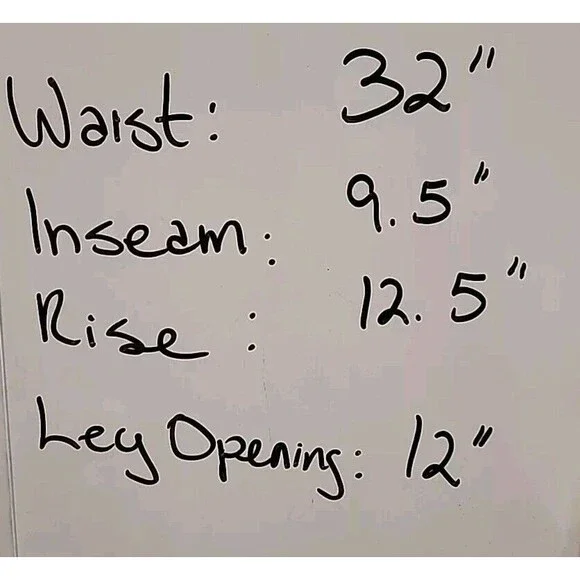 Waist: 32"
Inseam: 9.5"
Rise: 12.5"
Leg Opening: 12"